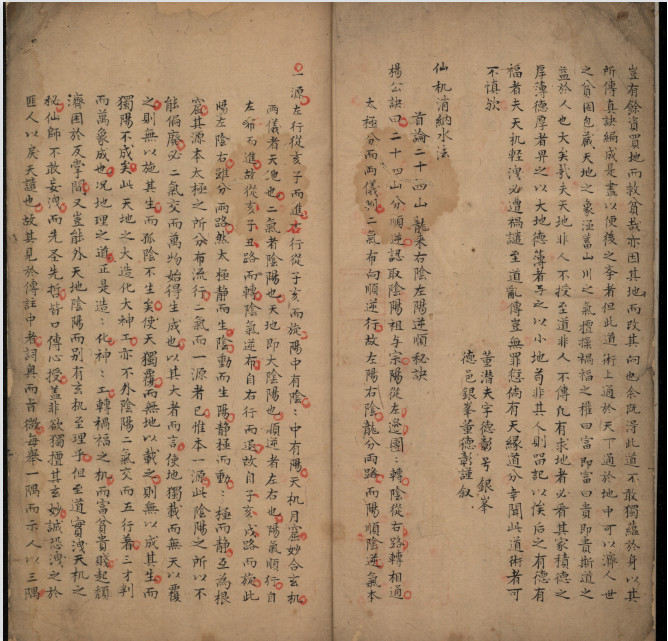 豈有餘資買地而救貧哉亦因其地而改其向也余既得此道不敢獨蘊於身以其
所傳真訣編成是書以便後之孝者但此道術上通於天下通於地中可以濟人世
之貧困包藏天地之象涵蓄山川之氣摠操禍福之權曰富即富曰貴即貴斯道之
益於人也大矣哉夫天地非人不授至道非人不傳凡有求地者必看其家積德之
厚薄德厚者畀之以大地德薄者與之以小地苟非其人則噐記以俟后之有德有
福者夫天机輕洩必遭禍譴至道亂傳豈無罪愆倘有天緣道分幸聞此道術者可
不慎欤
董潜夫字德彰号銀峯
德邑銀峯董德彰謹叙
仙机消納水法
首論二十四山龍来右陰左陽逆順秘訣
楊公訣曰二十四山分順逆認取陰陽祖与宗陽從左邊團：轉陰從右路轉相通
太極分而两儀判二氣布向順逆行故左陽右陰龍分两路而陽順陰逆氣本
一源左行從亥子而進右行從子亥而旋陽中有陰：中有陽天机月窟妙合玄机
两儀者天地也二氣者陰陽也天地即大陰陽也順逆者左右也陽氣順行自
左布而進故從亥子丑路而轉陰氣逆布自右行而退故自子亥戌路而旋此
陽左陰右雖分两路然太極静而生陰動而生陽静極而動：極而静互為根
窟其源本太極之所分布流行二氣而一源者已惟本一源此陰陽之所以不
能偏廢必二氣交而萬物始得生成也以其大者而言使地獨载而無天以覆
之則無以施其生而孤陰不生矣使天獨覆而無地以載之則無以成其生而
獨陽不成矣此天地之大造化大神工亦不外陰陽二氣交而五行著三才判
而萬象成也况地理之道正是造：化神：工轉禍福之机而富貧貴賤起顛
濟困於反掌間又豈能外天地陰陽而别有玄机至理乎但至道實洩天机之
秘仙師不敢妄洩而先圣先哲皆口傳心授盖非欲獨擅其玄妙誠恐洩之於
匪人以戾天譴也故其見於傳註中者詞奥而旨微每舉一隅而示人以三隅